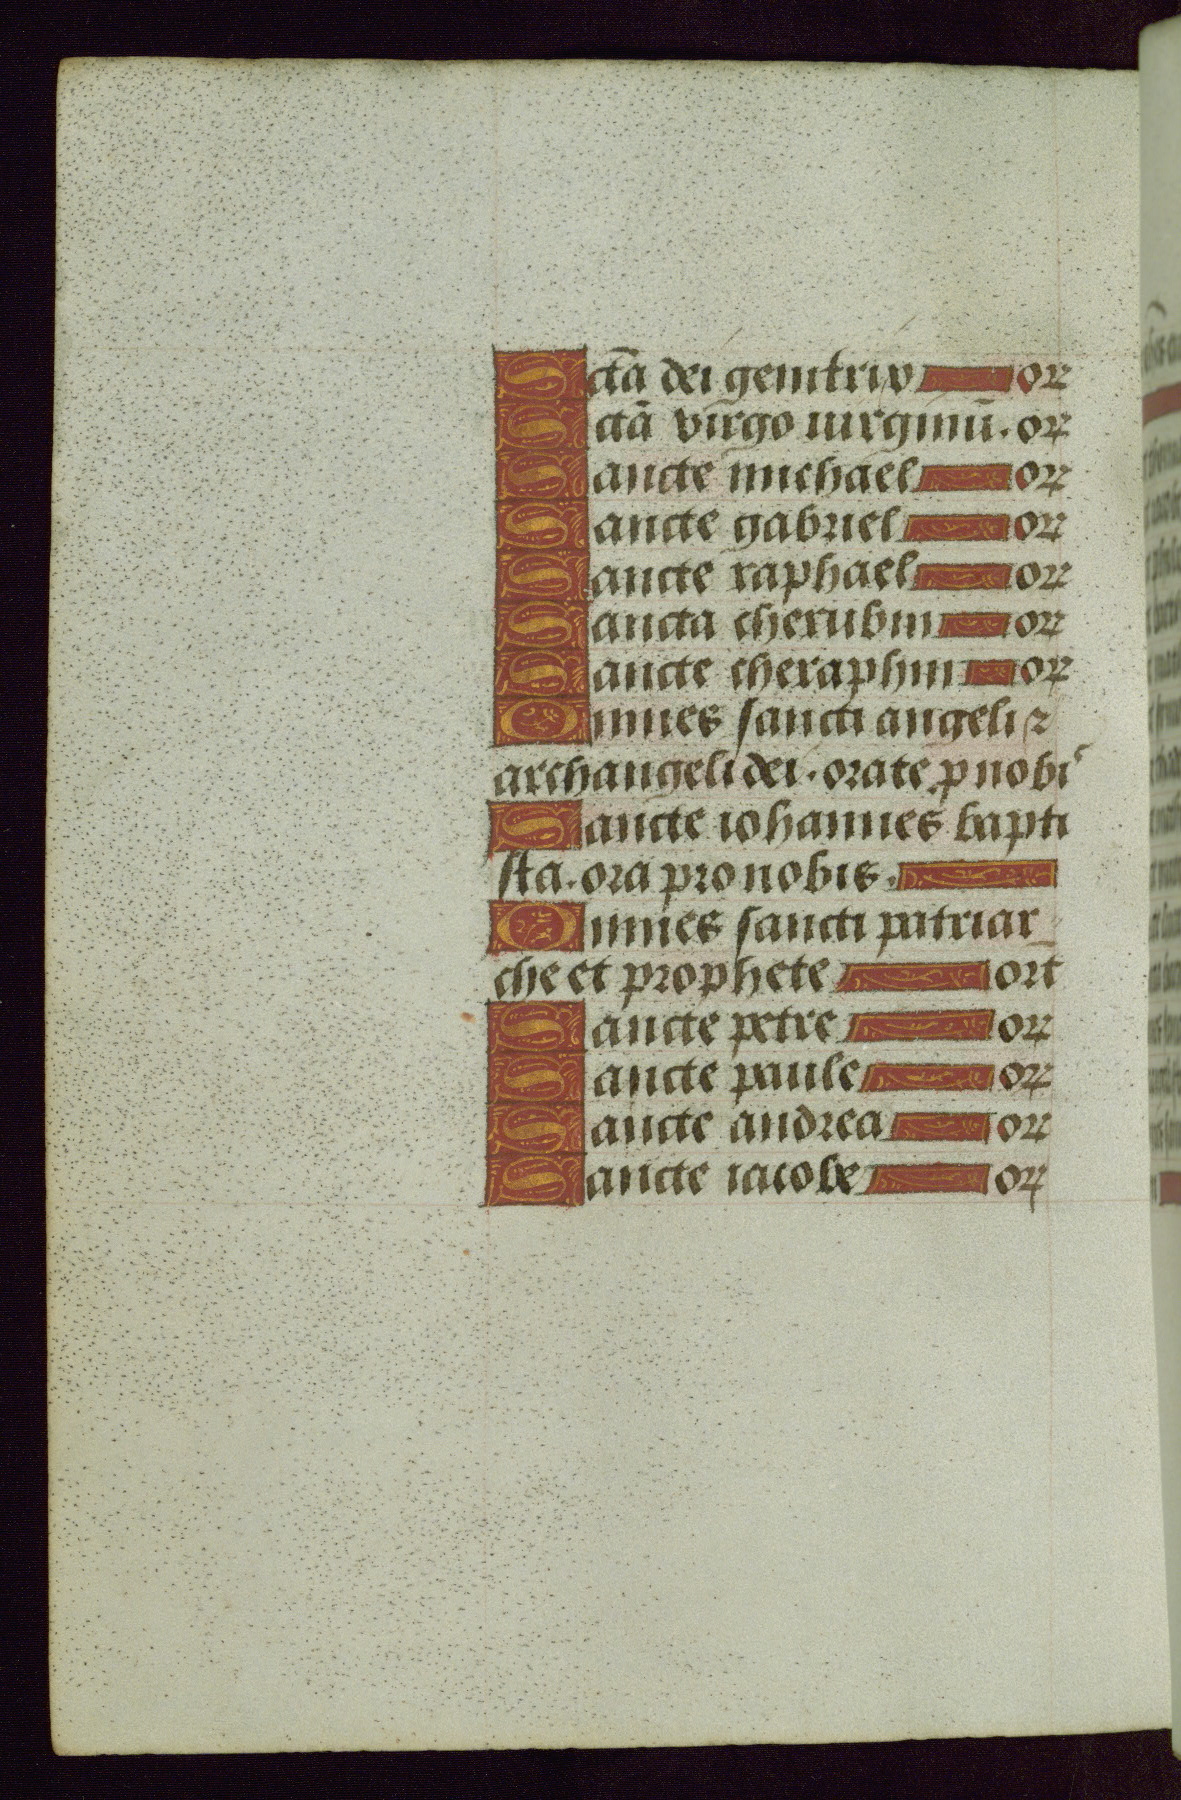 Sctā dei genitrix or
Sctā virgo uirginū. or
Sancte michael or
Sancte gabriel or
Sancte raphael or
Sancta cherubin or
Sancte cheraphin or
Omnes sancti angeli ⁊
archangeli dei. orate p nobi
Sancte iohannes bapti
sta. ora pro nobis.
Omnes sancti patriar
che et prophete ort
Sancte petre or
Sancte paule or
Sancte andrea or
Sancte iacobe or